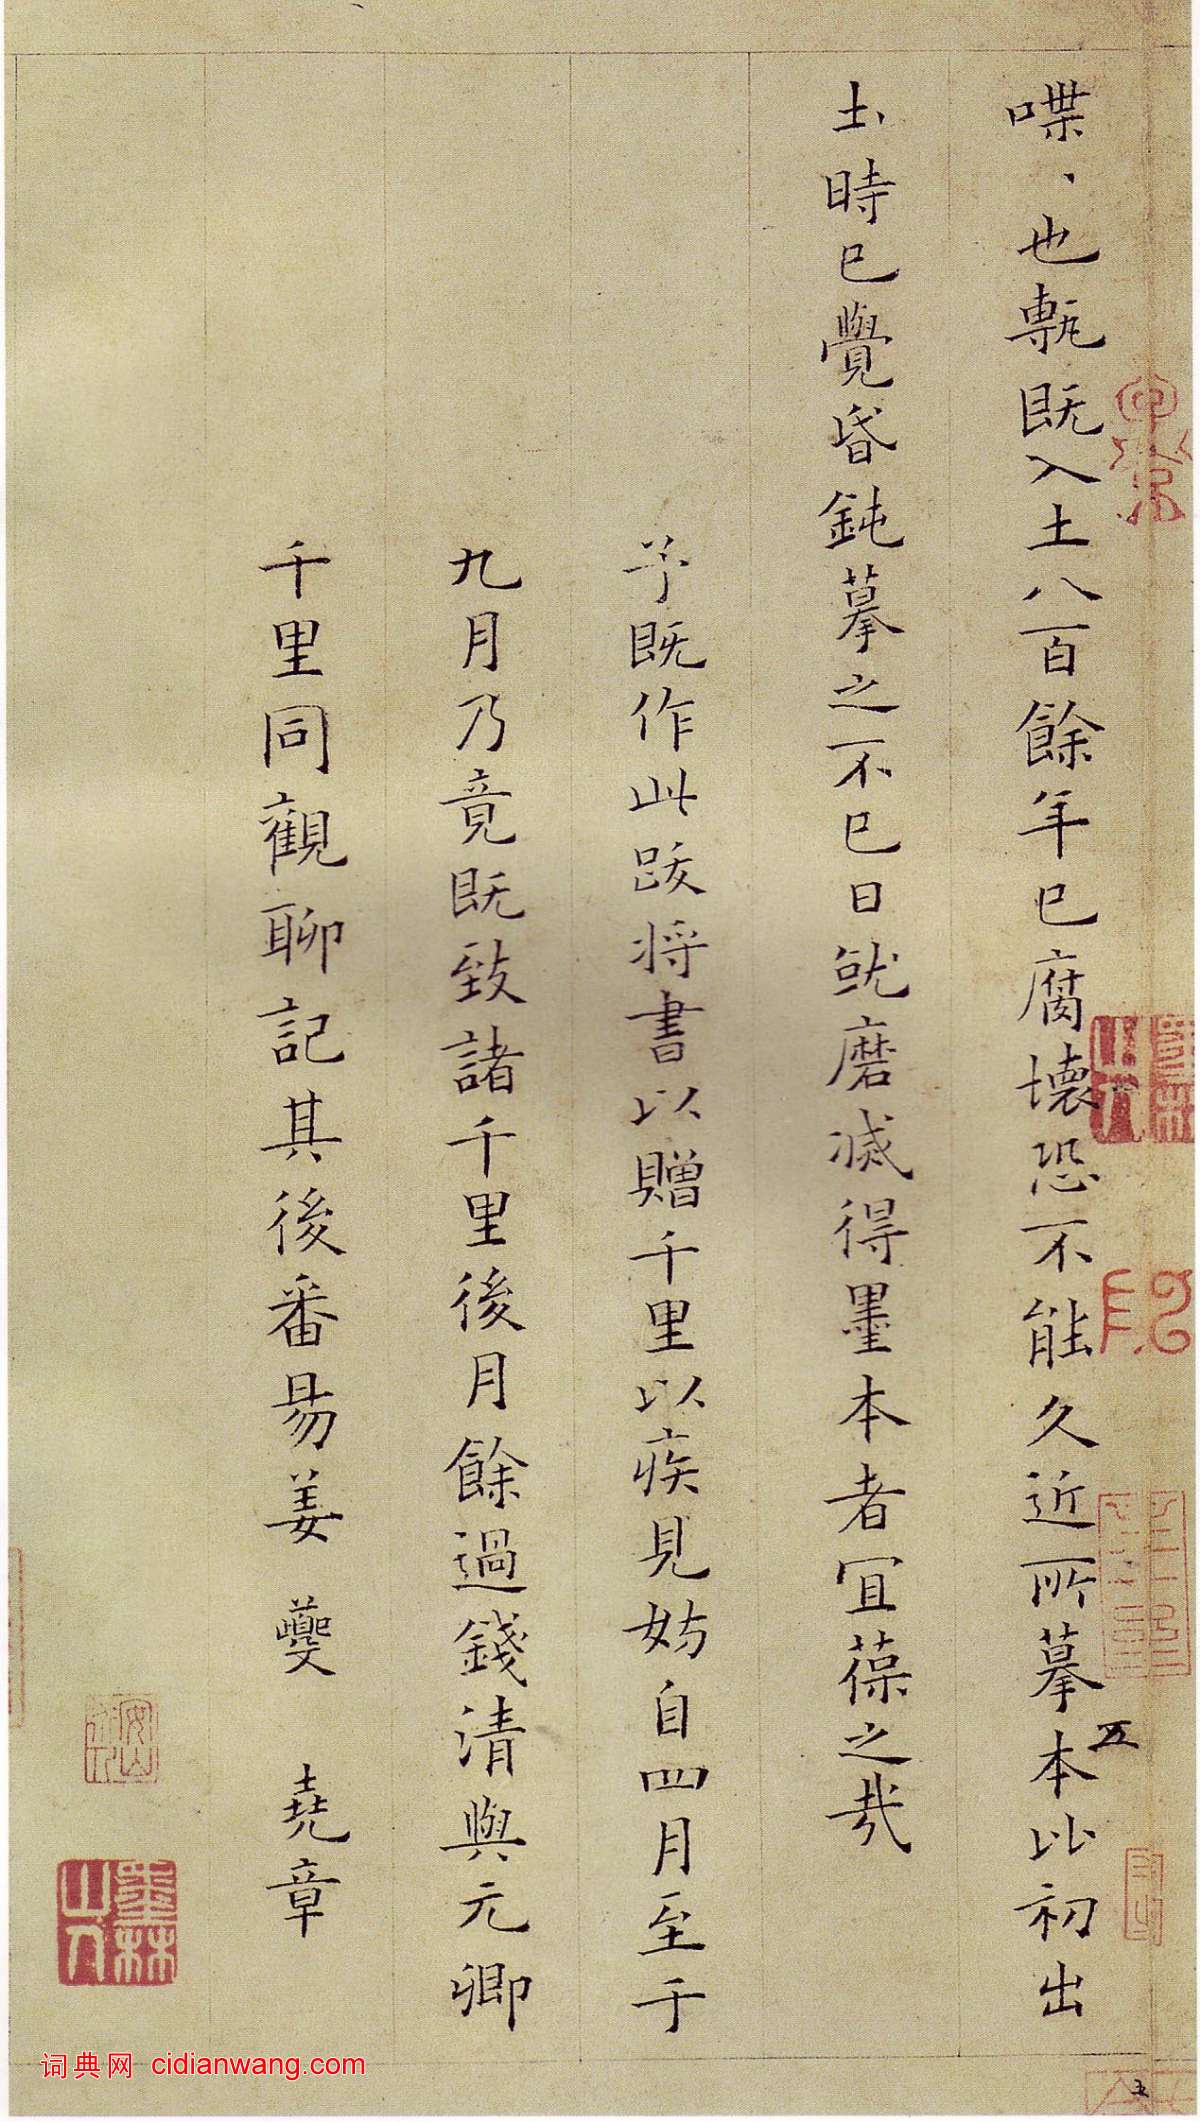 喋、也甎既入土八百餘年已腐壞恐不能久近所摹本比初出
土時已覺昏鈍摹之不已日就磨滅得墨本者宜葆之哉
予既作此跋將書以贈千里以疾見妨自四月至于
九月乃竟既致諸千里後月餘過錢清與元卿
千里同觀聊記其後番昜姜夔堯章
五
墨林山人
墨林山人
安
词典网 cidianwang.com